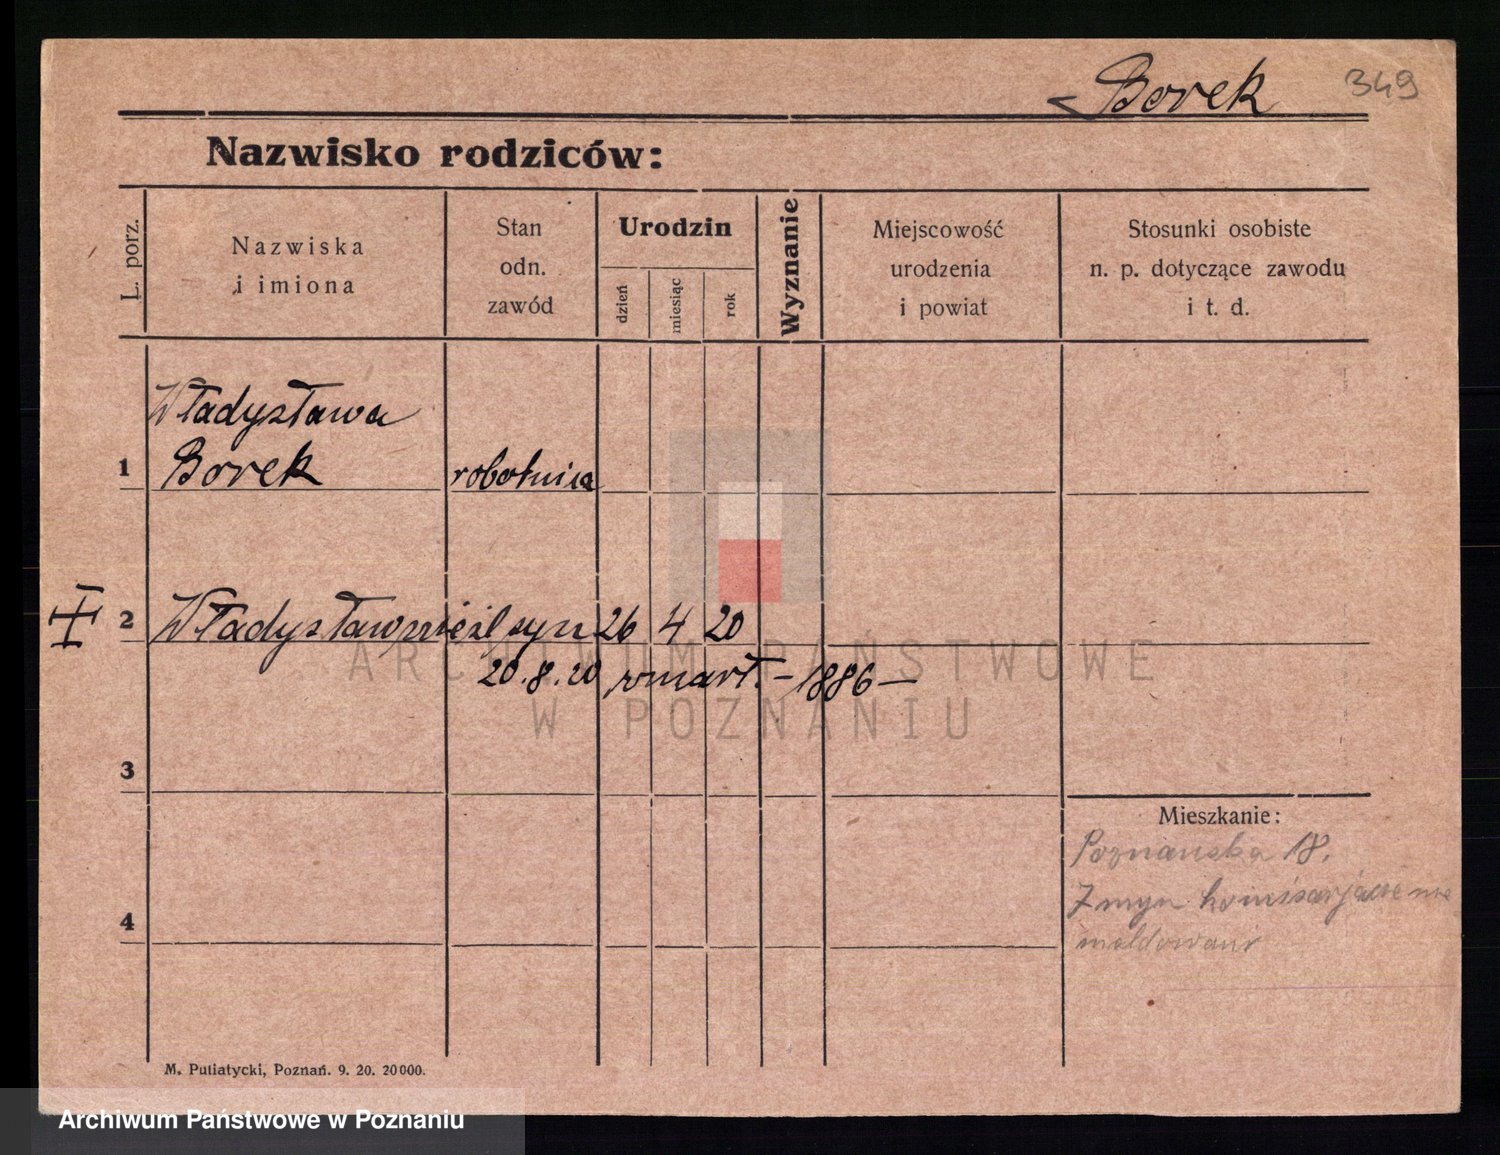 Borek 349
Nazwisko rodziców:
L. porz.
Nazwiska
i imiona
Stan
odn.
zawód
Urodzin
dzień
miesiąc
rok
Wyznanie
Miejscowość
urodzenia
i powiat
Stosunki osobiste
n. p. dotyczące zawodu
i t. d.
Władysława
1 Borek robotnica
2 Władysław nieśl syn 26 4 20
20.8.20 zmarł. – 1886 –
ARCHIWUM PAŃSTWOWE
W POZNANIU
3
Mieszkanie:
Poznanska 18.
4
meldowani
M. Putiatycki, Poznań. 9. 20. 20000.
Archiwum Państwowe w Poznaniu